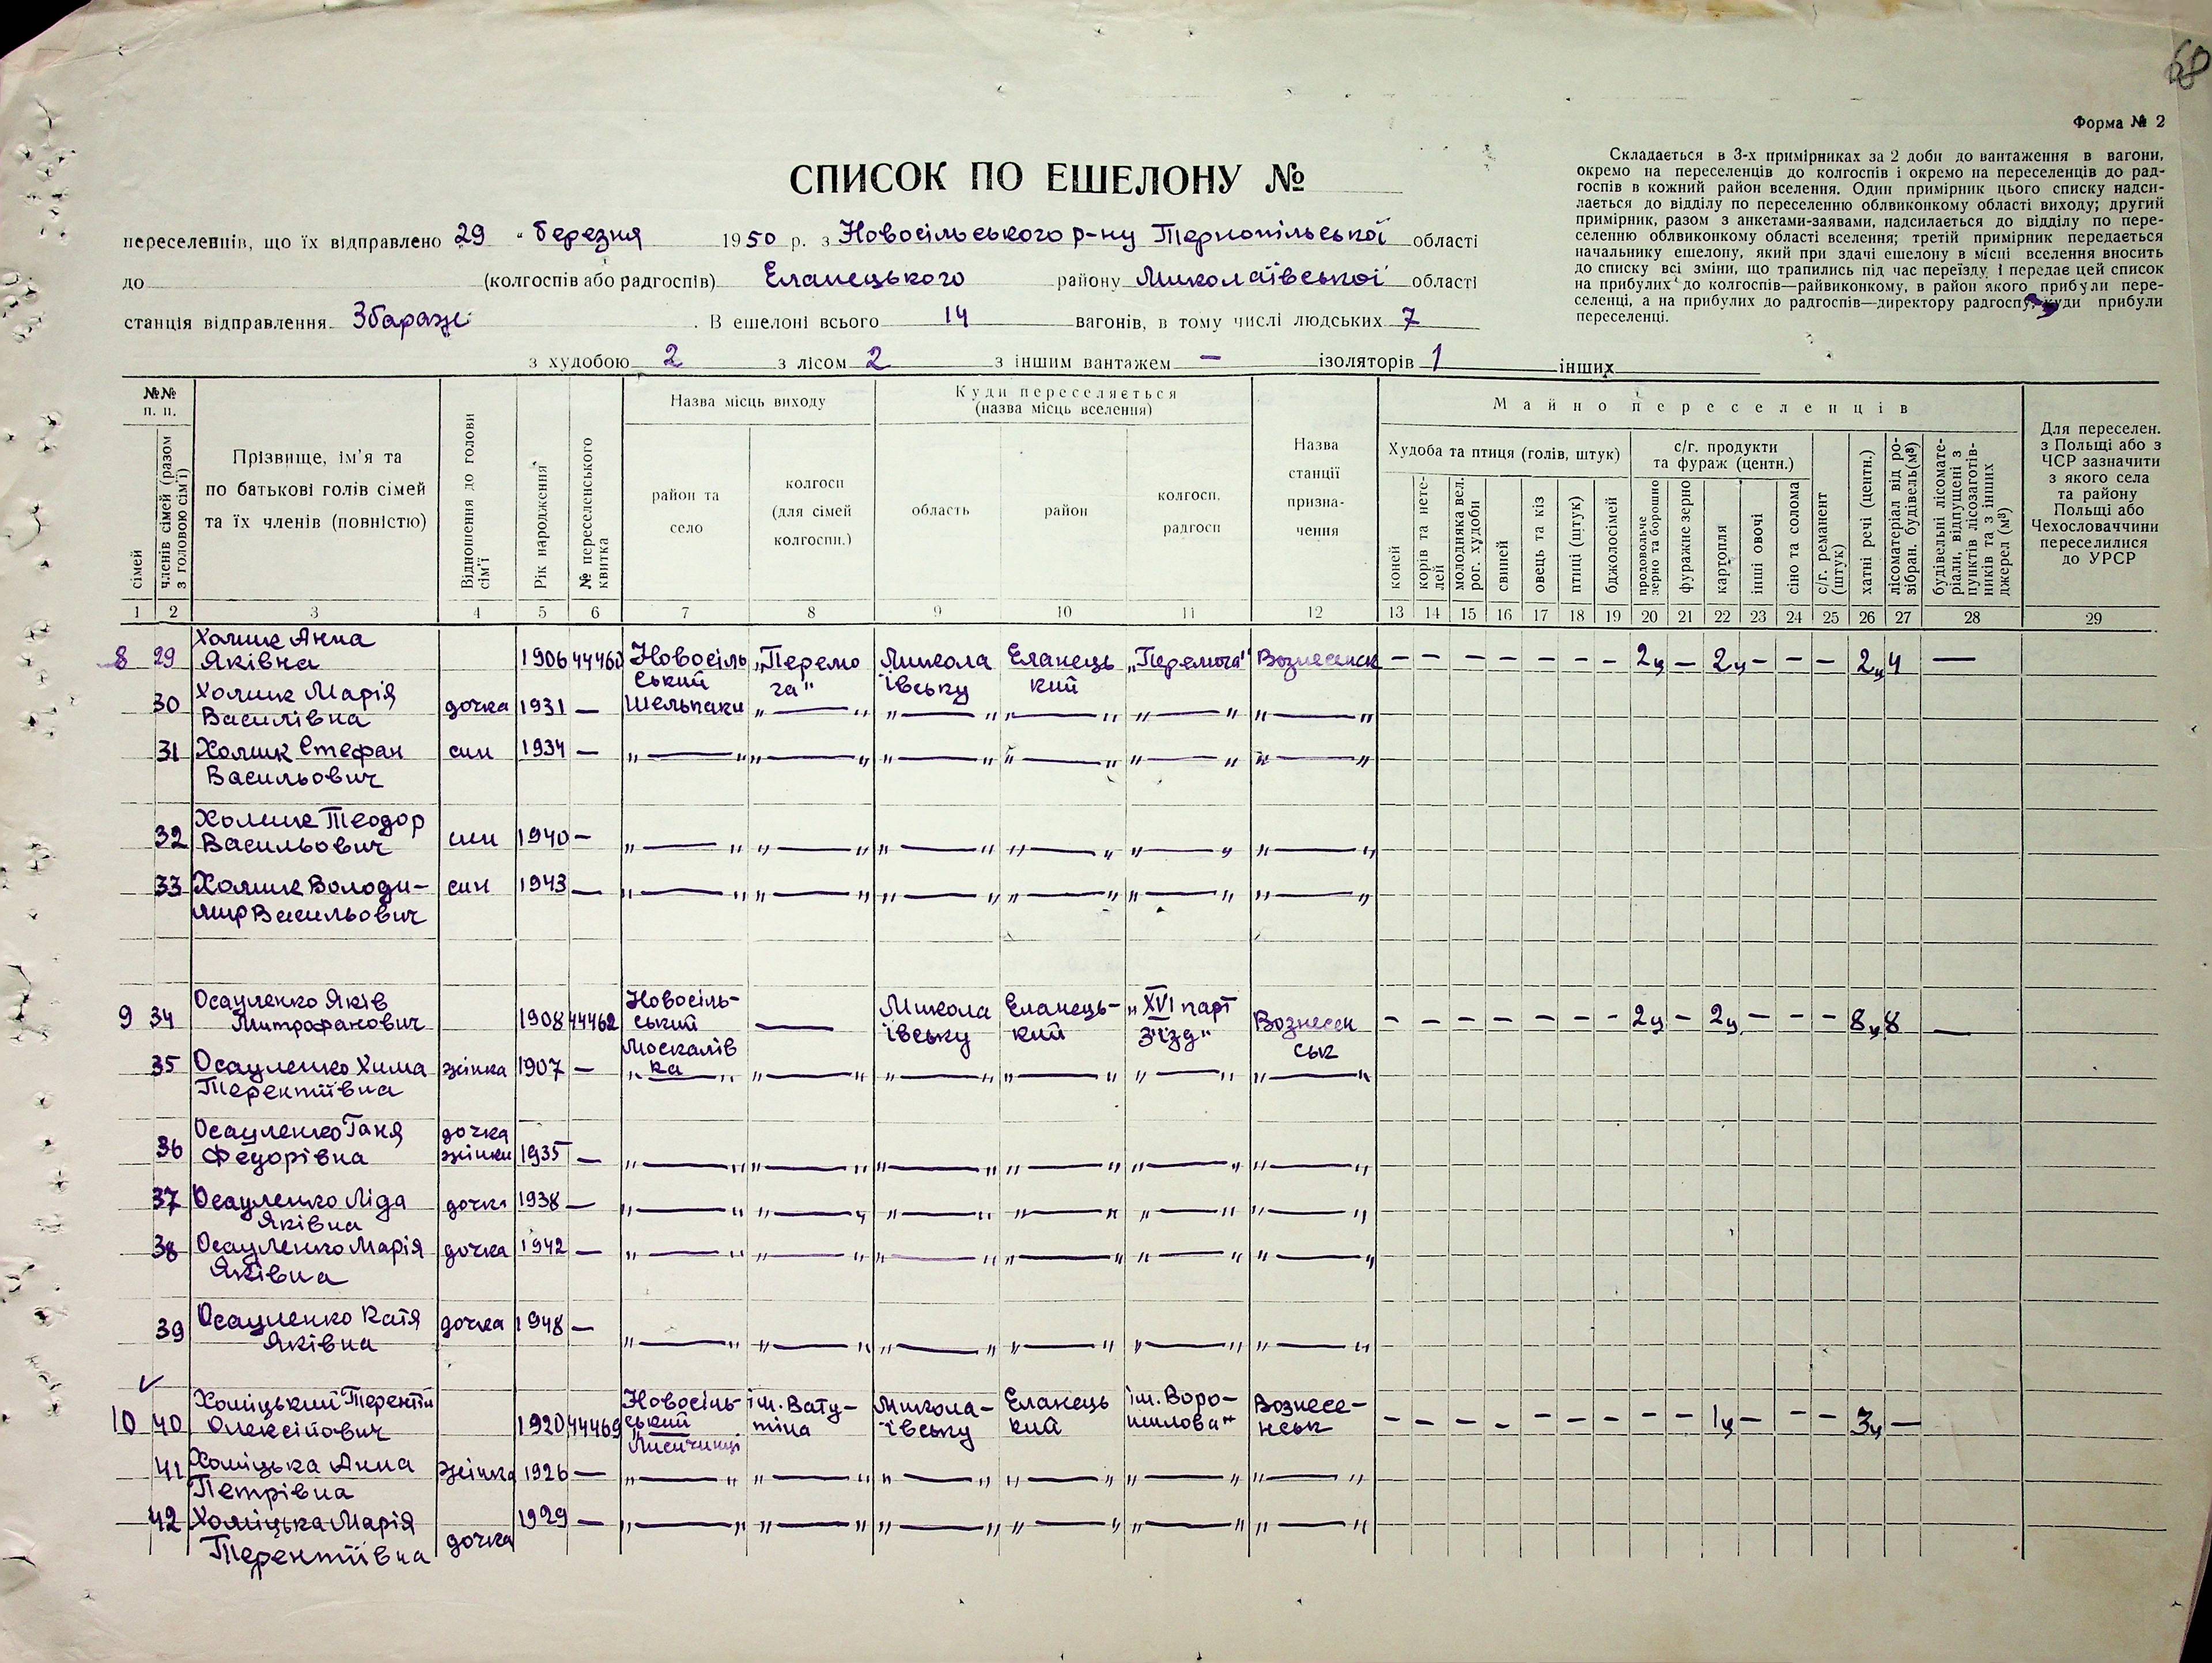 68
Форма № 2
СПИСОК ПО ЕШЕЛОНУ №
Складається в 3-х примірниках за 2 доби до вантаження в вагони,
окремо на переселенців до колгоспів і окремо на переселенців до рад-
госпів в кожний район вселення. Один примірник цього списку надси-
лається до відділу по переселенню облвиконкому області виходу; другий
примірник, разом з анкетами-заявами, надсилається до відділу по пере-
селенню облвиконкому області вселення; третій примірник передається
начальнику ешелону, який при здачі ешелону в місці вселення вносить
до списку всі зміни, що трапились під час переїзду і передає цей список
на прибулих до колгоспів—райвиконкому, в район якого прибули пере-
селенці, а на прибулих до радгоспів—директору радгоспу, куди прибули
переселенці.
переселенців, що їх відправлено 29 " березня 1950 р. з Новосільського р-ну Тернопільської області
до (колгоспів або радгоспів) Еланецького району Миколаївської області
станція відправлення Збараж . В ешелоні всього 14 вагонів, в тому числі людських 7
з худобою 2 з лісом 2 з іншим вантажем — ізоляторів 1 інших
№№ п. п.
сімей
членів сімей (разом з головою сім'ї)
Прізвище, ім'я та
по батькові голів сімей
та їх членів (повністю)
Відношення до голови сім'ї
Рік народження
№ переселенського квитка
Назва місць виходу
район та село
колгосп (для сімей колгоспн.)
Куди переселяється
(назва місць вселення)
область
район
колгосп, радгосп
Назва станції призна-чення
Майно переселенців
Худоба та птиця (голів, штук)
коней
корів та нете-лей
молодняка вел. рог. худоби
свиней
овець та кіз
птиці (штук)
бджолосімей
с/г. продукти та фураж (центн.)
продовольче зерно та борошно
фуражне зерно
картопля
інші овочі
сіно та солома
с/г. реманент (штук)
хатні речі (центн.)
лісоматеріал від ро-зібран. будівель (м³)
будівельні лісомате-ріали, відпущені з пунктів лісозаготів-ників та з інших джерел (м³)
Для переселен.
з Польщі або з
ЧСР зазначити
з якого села
та району
Польщі або
Чехословаччини
переселилися
до УРСР
1 2 3 4 5 6 7 8 9 10 11 12 13 14 15 16 17 18 19 20 21 22 23 24 25 26 27 28 29
8 29 Холик Анна Яківна 1906 44460 Новосільський Шельпаки „Перемога" Миколаївську Еланецький „Перемога" Вознесенск – – – – – – – 2ц – 2ц – – – 2ц 4 —
30 Холик Марія Василівна дочка 1931 — „ — " „ — " „ — " „ — " „ — "
31 Холик Стефан Васильович син 1934 — „ — " „ — " „ — " „ — " „ — " „ — "
32 Холик Теодор Васильович син 1940 — „ — " „ — " „ — " „ — " „ — " „ — "
33 Холик Володимир Васильович син 1943 — „ — " „ — " „ — " „ — " „ — " „ — "
9 34 Осауленко Яків Митрофанович 1908 44462 Новосільський Москалівка — Миколаївську Еланецький „XVI парт з'їзд" Вознесенськ – – – – – – – 2ц – 2ц – – – 8ц 8 —
35 Осауленко Хима Терентіївна жінка 1907 — „ — " „ — " „ — " „ — " „ — " „ — "
36 Осауленко Ганя Федорівна дочка жінки 1935 — „ — " „ — " „ — " „ — " „ — " „ — "
37 Осауленко Ліда Яківна дочка 1938 — „ — " „ — " „ — " „ — " „ — " „ — "
38 Осауленко Марія Яківна дочка 1942 — „ — " „ — " „ — " „ — " „ — " „ — "
39 Осауленко Катя Яківна дочка 1948 — „ — " „ — " „ — " „ — " „ — " „ — "
10 40 Хоміцький Терентій Олексійович 1920 44469 Новосільський Лисичинці ім. Ватутіна Миколаївську Еланецький ім. Ворошилова" Вознесенськ – – – – – – – – – 1ц – – – 3ц —
41 Хоміцька Анна Петрівна жінка 1926 — „ — " „ — " „ — " „ — " „ — " „ — "
42 Хоміцька Марія Терентіївна дочка 1929 — „ — " „ — " „ — " „ — " „ — " „ — "